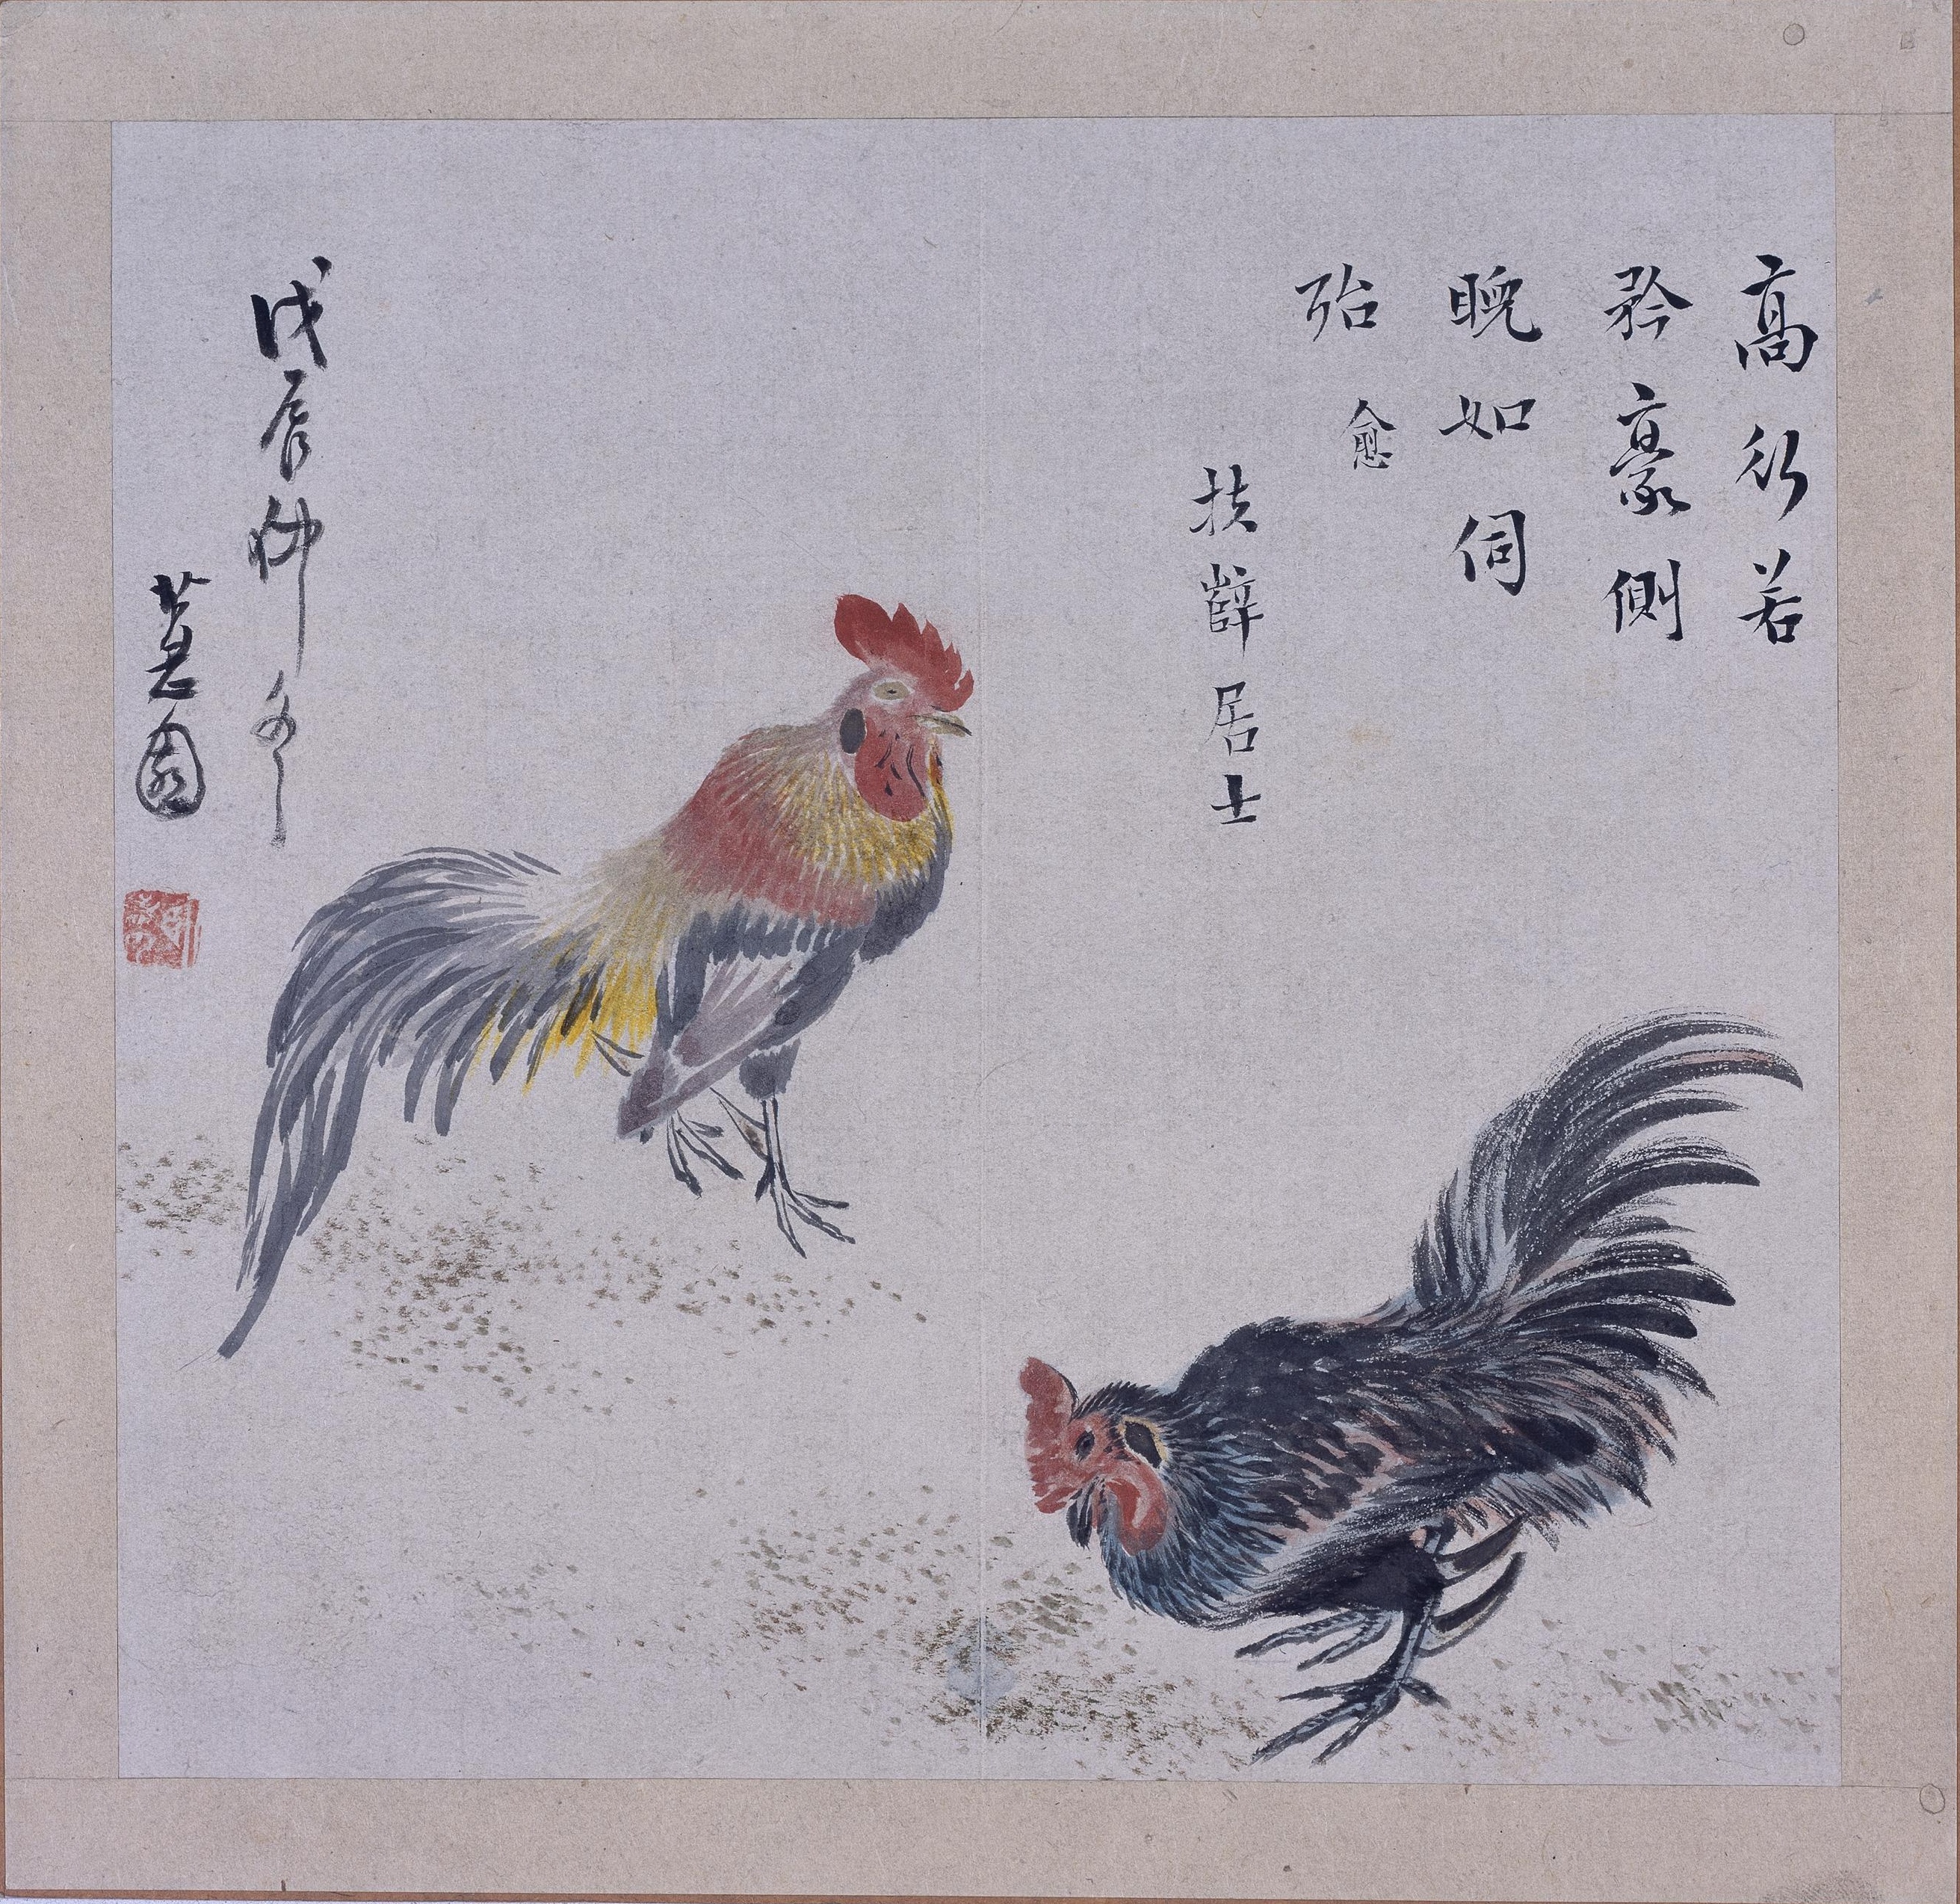 高行若
矜豪側
睨如伺
殆 愈
扶薛居士
戊辰仲冬
蕙園